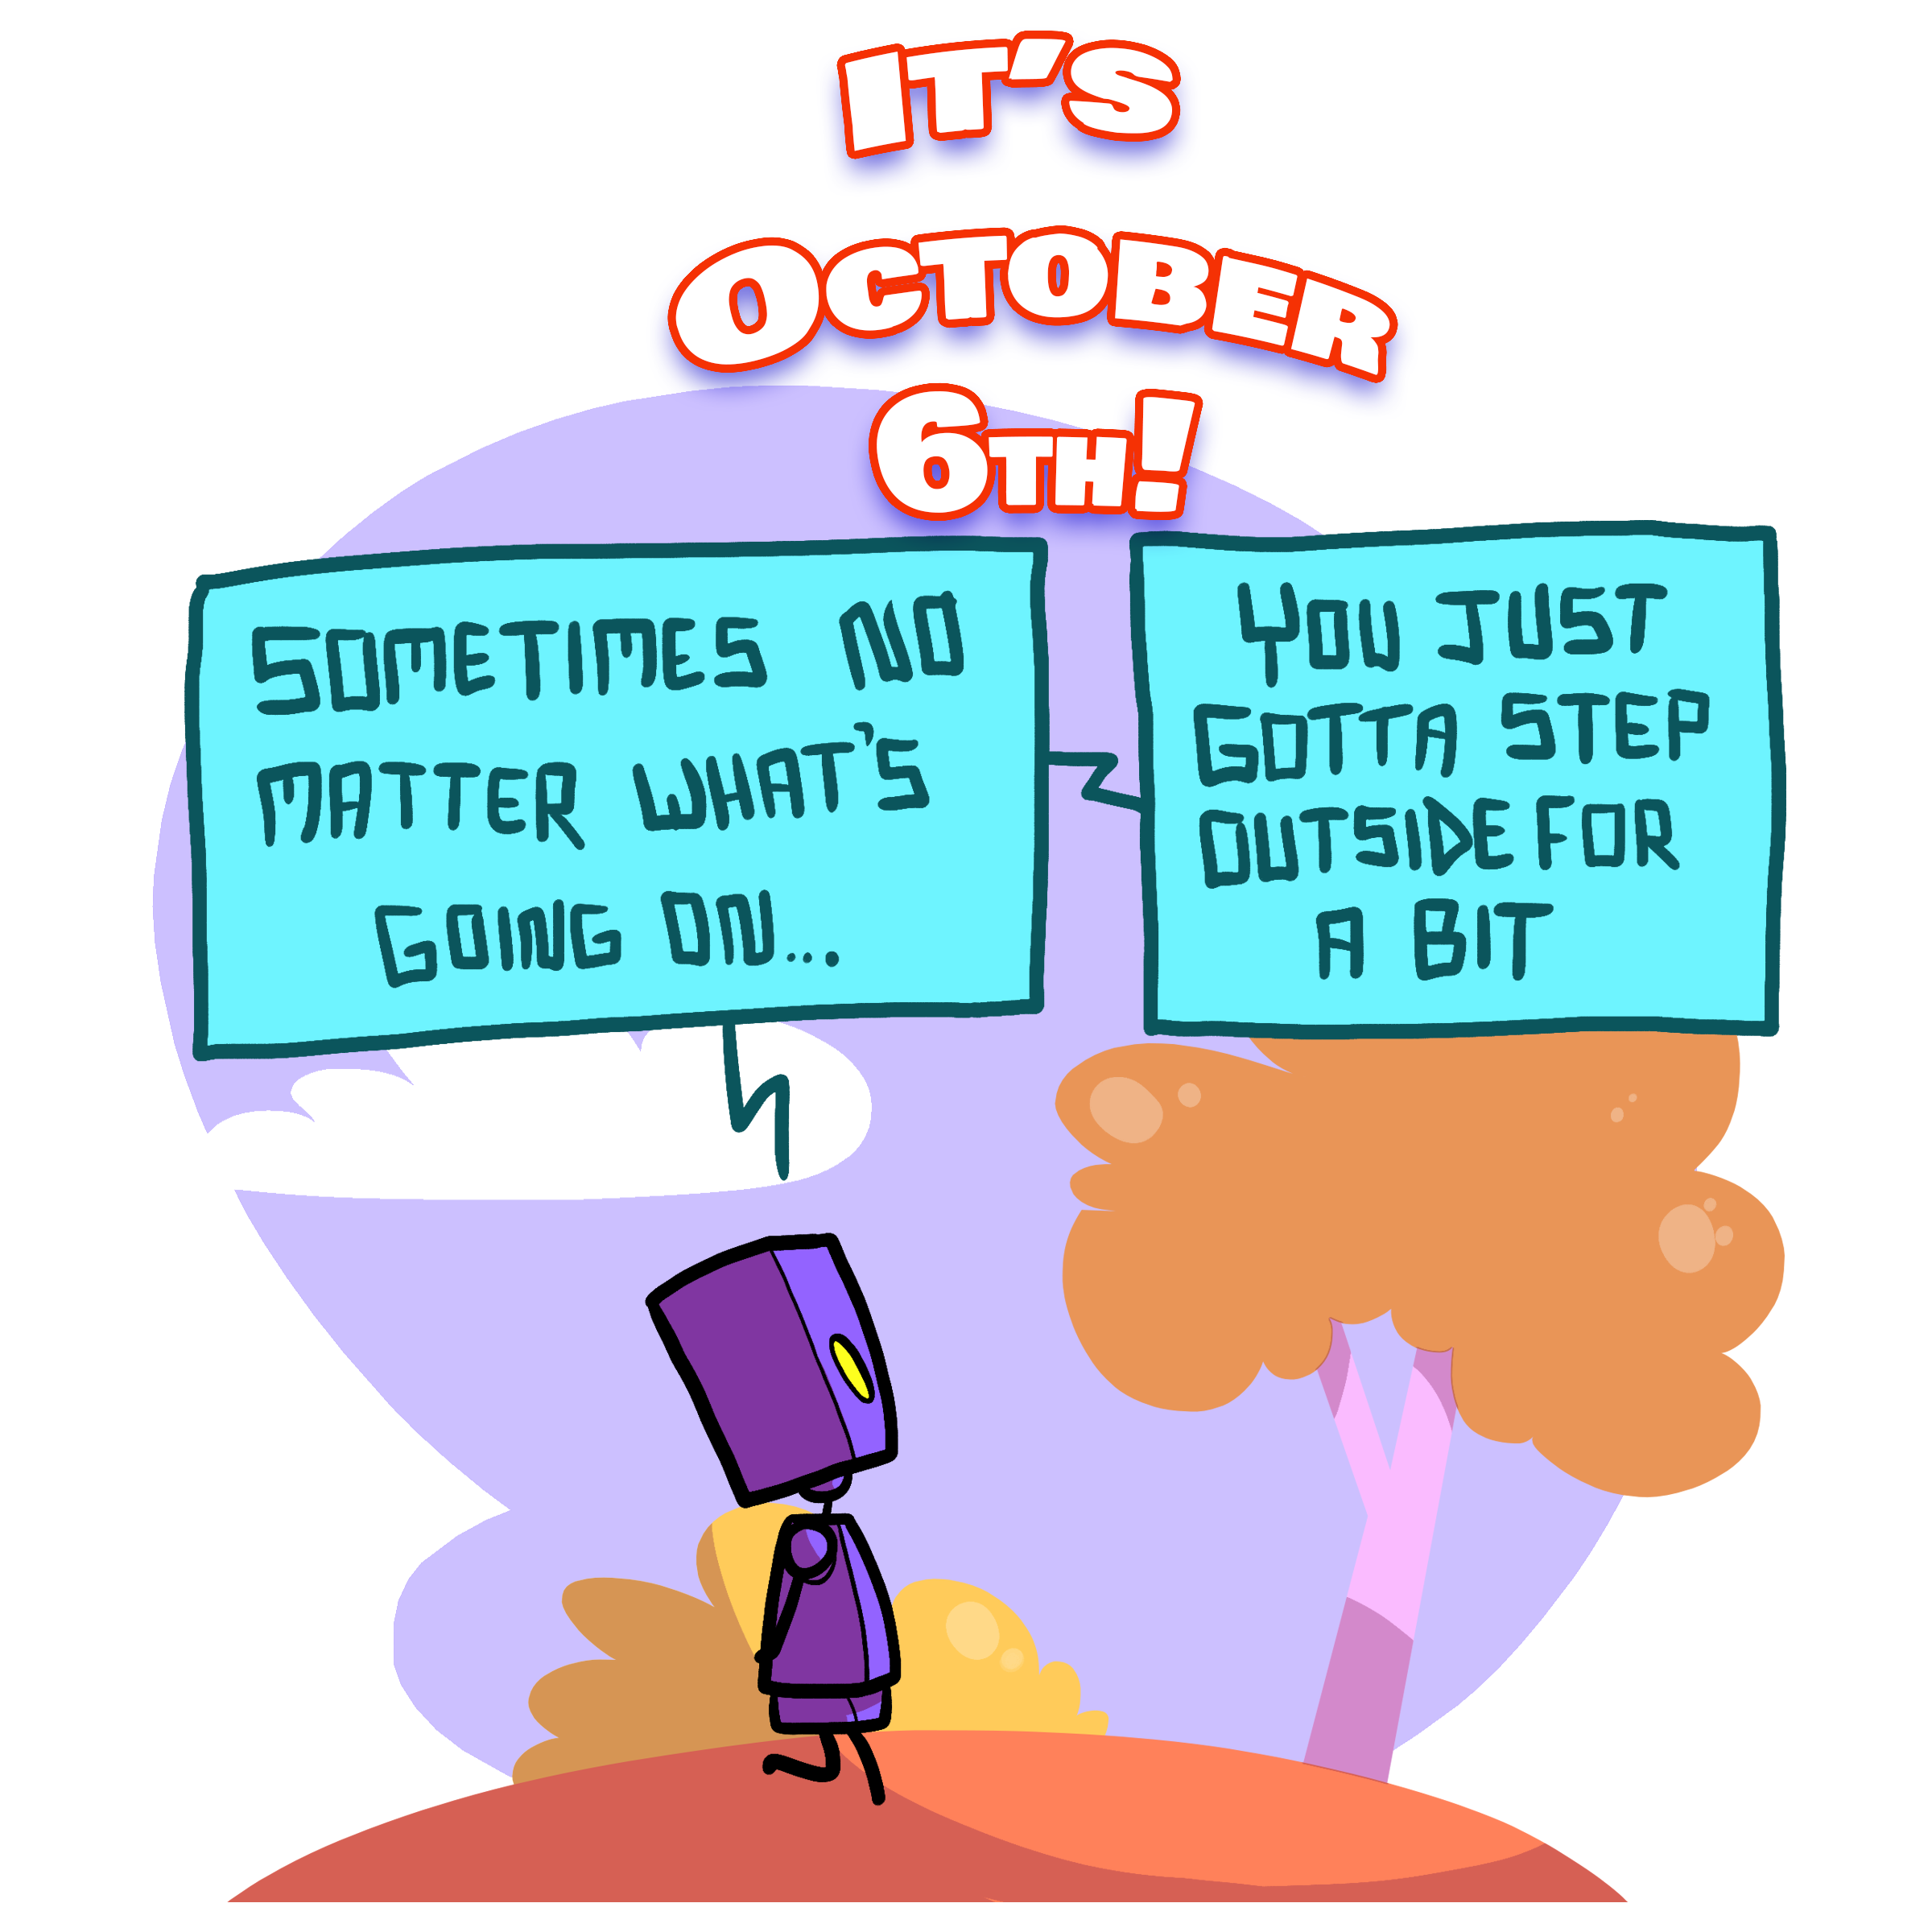 IT'S
OCTOBER
6TH!
SOMETIMES NO
MATTER WHAT'S
GOING ON...
YOU JUST
GOTTA STEP
OUTSIDE FOR
A BIT